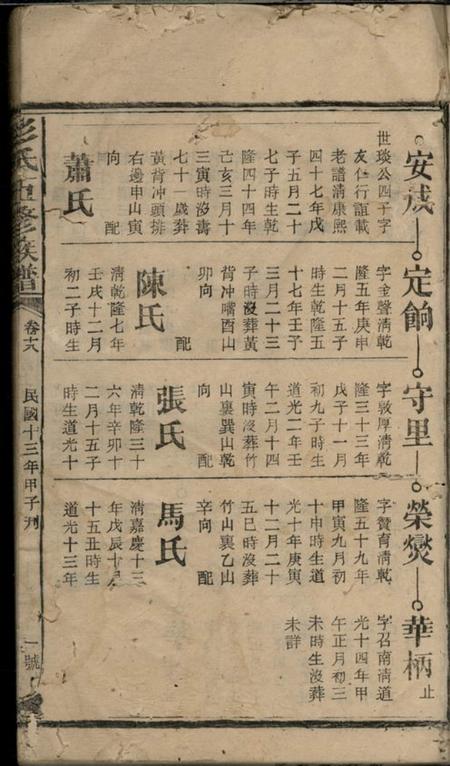 彭氏四修族譜
卷十八
民國十三年甲子刋
一號
安成
世琰公四子字
友仁行誼載
老譜清康熙
四十七年戊
子五月二十
七子時生乾
隆四十四年
己亥三月十
三寅時沒壽
七十一歲葬
黃背冲頭排
右邊申山寅
向
配
蕭氏
定餉
字奎聲清乾
隆五年庚申
二月十五子
時生乾隆五
十七年壬子
三月二十三
子時沒葬黃
背冲嘴酉山
卯向
配
陳氏
清乾隆七年
壬戌十二月
初二子時生
守里
字敦厚清乾
隆三十三年
戊子十一月
初九子時生
道光二年壬
午二月十四
寅時沒葬竹
山裏巽山乾
向
配
張氏
清乾隆三十
六年辛卯十
二月十五子
時生道光十
榮爕
字贊育清乾
隆五十九年
甲寅九月初
十申時生道
光十年庚寅
十二月二十
五巳時沒葬
竹山裏乙山
辛向
配
馬氏
清嘉慶十三
年戊辰十月
十五丑時生
道光十三年
華柄
止
字召南清道
光十四年甲
午正月初三
未時生沒葬
未詳